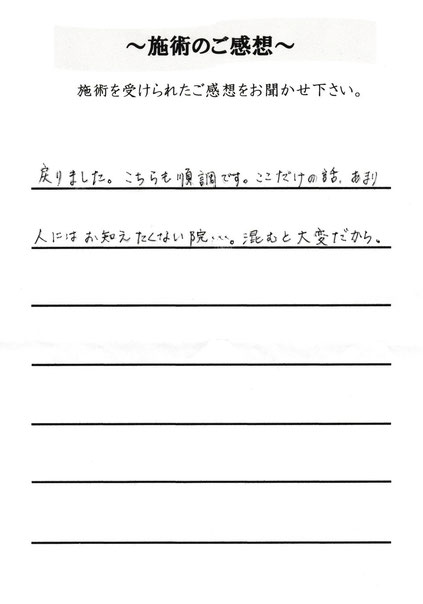 ～施術のご感想～
施術を受けられたご感想をお聞かせ下さい。
戻りました。こちらも順調です。ここだけの話、あまり
人にはお知えたくない院…。混むと大変だから。